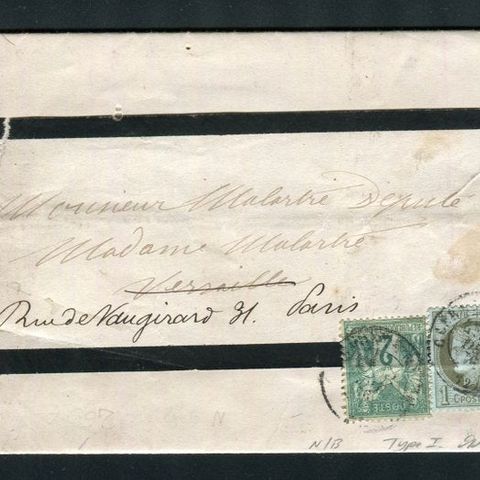 Monsieur Malartré Député
Madame Malartré
Versailles
Rue de Vaugirard 31. Paris
POSTE
1 C POSTE
N/B Type I